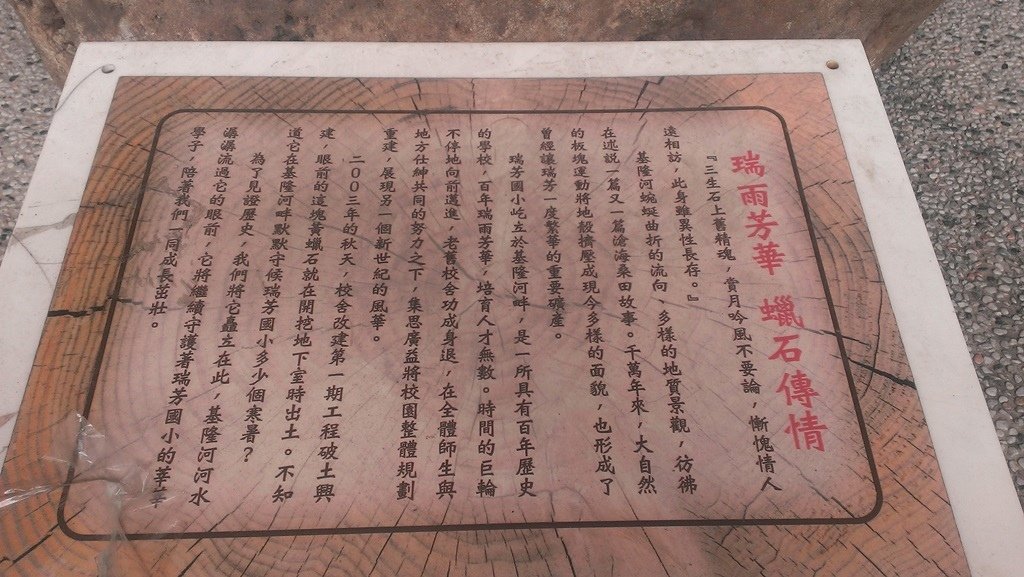 瑞雨芳華 蠟石傳情
『三生石上舊精魂，賞月吟風不要論，慚愧情人
遠相訪，此身雖異性長存。』
基隆河蜿蜒曲折的流向、多樣的地質景觀，彷彿
在述說一篇又一篇滄海桑田故事。千萬年來，大自然
的板塊運動將地殼擠壓成現今多樣的面貌，也形成了
曾經讓瑞芳一度繁華的重要礦產。
瑞芳國小屹立於基隆河畔，是一所具有百年歷史
的學校，百年瑞雨芳華，培育人才無數。時間的巨輪
不停地向前邁進，老舊校舍功成身退，在全體師生與
地方仕紳共同的努力之下，集思廣益將校園整體規劃
重建，展現另一個新世紀的風華。
二００三年的秋天，校舍改建第一期工程破土興
建，眼前的這塊黃蠟石就在開挖地下室時出土。不知
道它在基隆河畔默默守候瑞芳國小多少個寒暑？
為了見證歷史，我們將它矗立在此，基隆河河水
潺潺流過它的眼前，它將繼續守護著瑞芳國小的莘莘
學子，陪著我們一同成長茁壯。